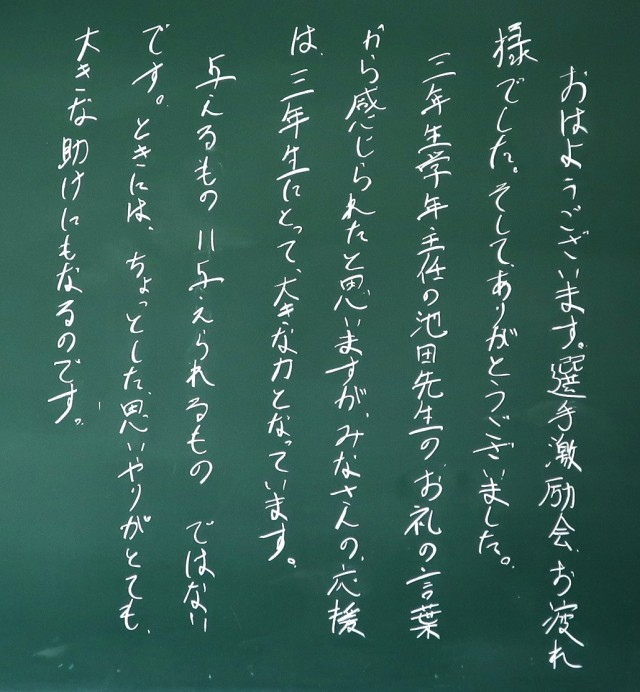 おはようございます。選手激励会、お疲れ
様でした。そして、ありがとうございました。
三年生学年主任の池田先生の、お礼の言葉
から感じられたと思いますが、みなさんの、応援
は、三年生にとって、大きな力となっています。
与えるもの＝与えられるもの ではない
です。ときには、ちょっとした、思いやりがとても、
大きな助けにもなるのです。